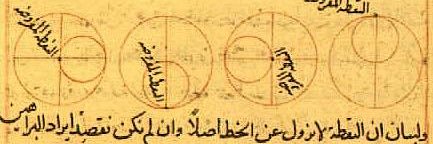 النقطة المفروضة
النقطة المفروضة
النقطة المفروضة
النقطة المفروضة
ولبيان ان النقطة لا تزول عن الخط اصلاً وان لم نكن نقصد ايراد البراهين